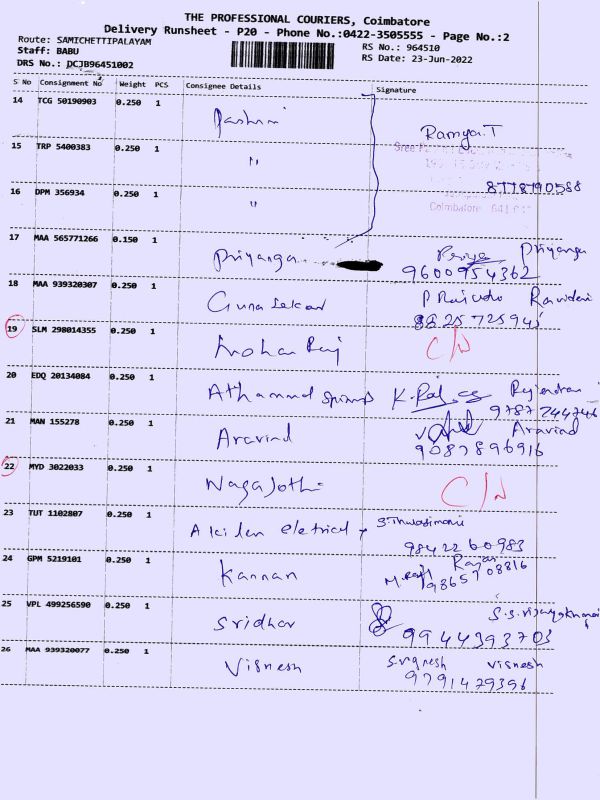 THE PROFESSIONAL COURIERS, Coimbatore
Delivery Runsheet - P20 - Phone No.:0422-3505555 - Page No.:2
Route: SAMICHETTIPALAYAM
Staff: BABU
RS No.: 964510
DRS No.: DCJB96451002
RS Date: 23-Jun-2022
S No Consignment No Weight PCS Consignee Details Signature
14 TCG 50190903 0.250 1
Ramya.T
15 TRP 5400383 0.250 1 "
16 DPM 356934 0.250 1 "
8778790588
Coimbatore 641
17 MAA 565771266 0.150 1 Priyanga Priya Priyanga
9600954362
18 MAA 939320307 0.250 1 Gunasekar
8825725945
19 SLM 298014355 0.250 1 Mohan Raj C/N
20 EDQ 20134084 0.250 1 K.Raj Rajendran
9787744746
21 MAN 155278 0.250 1 Aravind Aravind
9087896916
22 MYD 3022033 0.250 1 Nagajothi C/N
23 TUT 1102807 0.250 1
9842260983
24 GPM 5219101 0.250 1 Kannan Rajan
9865708816
25 VPL 499256590 0.250 1 Sridhar
9944393703
26 MAA 939320077 0.250 1 Visnesh S.vignesh visnesh
9791479396